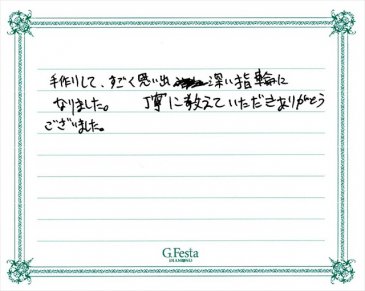 手作りして、すごく思い出深い指輪に
なりました。 丁寧に教えていただきありがとう
ございました。
G.Festa